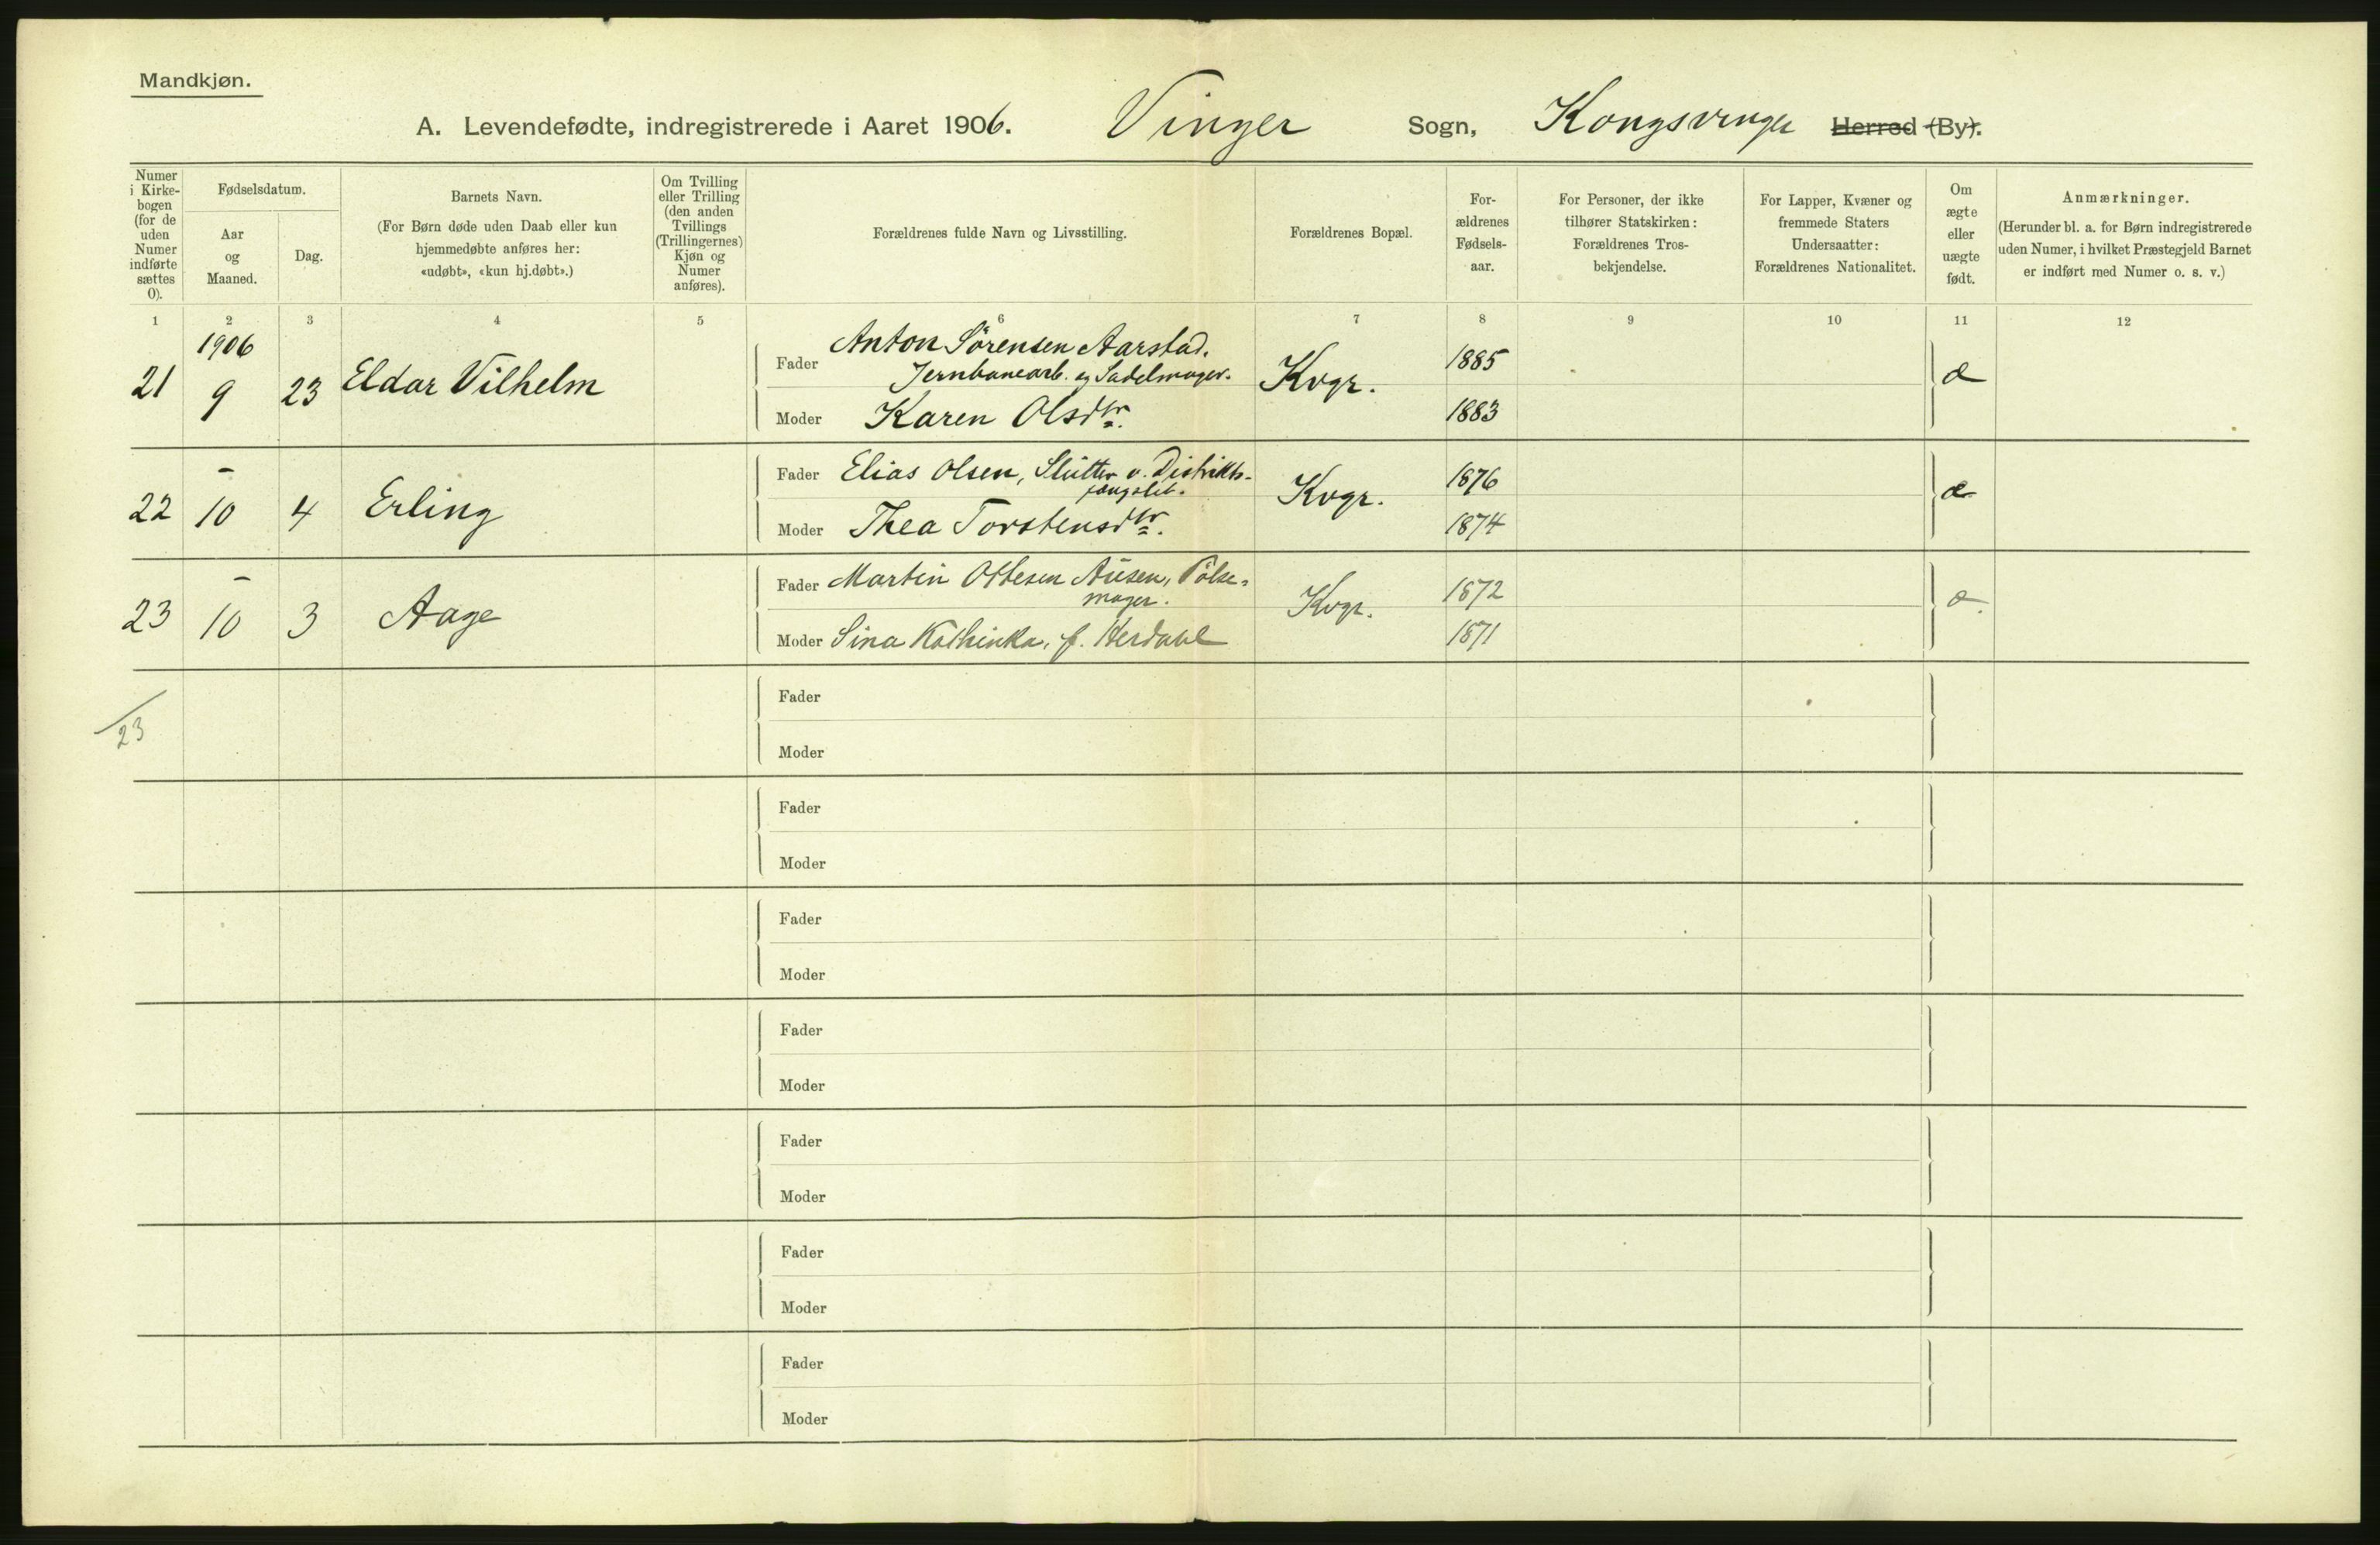 Mandkjøn.
A. Levendefødte, indregistrerede i Aaret 1906. Vinger Sogn, Kongsvinger Herred (By).
Numer i Kirkebogen (for de uden Numer indførte sættes 0).
Fødselsdatum.
Aar og Maaned.
Dag.
Barnets Navn.
(For Børn døde uden Daab eller kun
hjemmedøbte anføres her:
«udøbt», «kun hj.døbt».)
Om Tvilling
eller Trilling
(den anden
Tvillings
(Trillingernes)
Kjøn og
Numer
anføres).
Forældrenes fulde Navn og Livsstilling.
Forældrenes Bopæl.
For-
ældrenes
Fødsels-
aar.
For Personer, der ikke
tilhører Statskirken:
Forældrenes Tros-
bekjendelse.
For Lapper, Kvæner og
fremmede Staters
Undersaatter:
Forældrenes Nationalitet.
Om
ægte
eller
uægte
født.
Anmærkninger.
(Herunder bl. a. for Børn indregistrerede
uden Numer, i hvilket Præstegjeld Barnet
er indført med Numer o. s. v.)
1 2 3 4 5 6 7 8 9 10 11 12
1906
21 9 23 Eldar Vilhelm
Fader Anton Sörensen Aarstad.
Jernbanearb. og Sadelmager.
Kvgr. 1885 æ
Moder Karen Olsdtr. 1883
-
22 10 4 Erling
Fader Elias Olsen, Slutter v. Distrikts-
fængslet.
Kvgr. 1876 æ
Moder Thea Torstensdtr. 1874
-
23 10 3 Aage
Fader Martin Ottesen Ausen, Pölse-
mager.
Kvgr. 1872 æ
Moder Sina Kathinka, f. Herdahl 1871
23
Fader
Moder
Fader
Moder
Fader
Moder
Fader
Moder
Fader
Moder
Fader
Moder
Fader
Moder